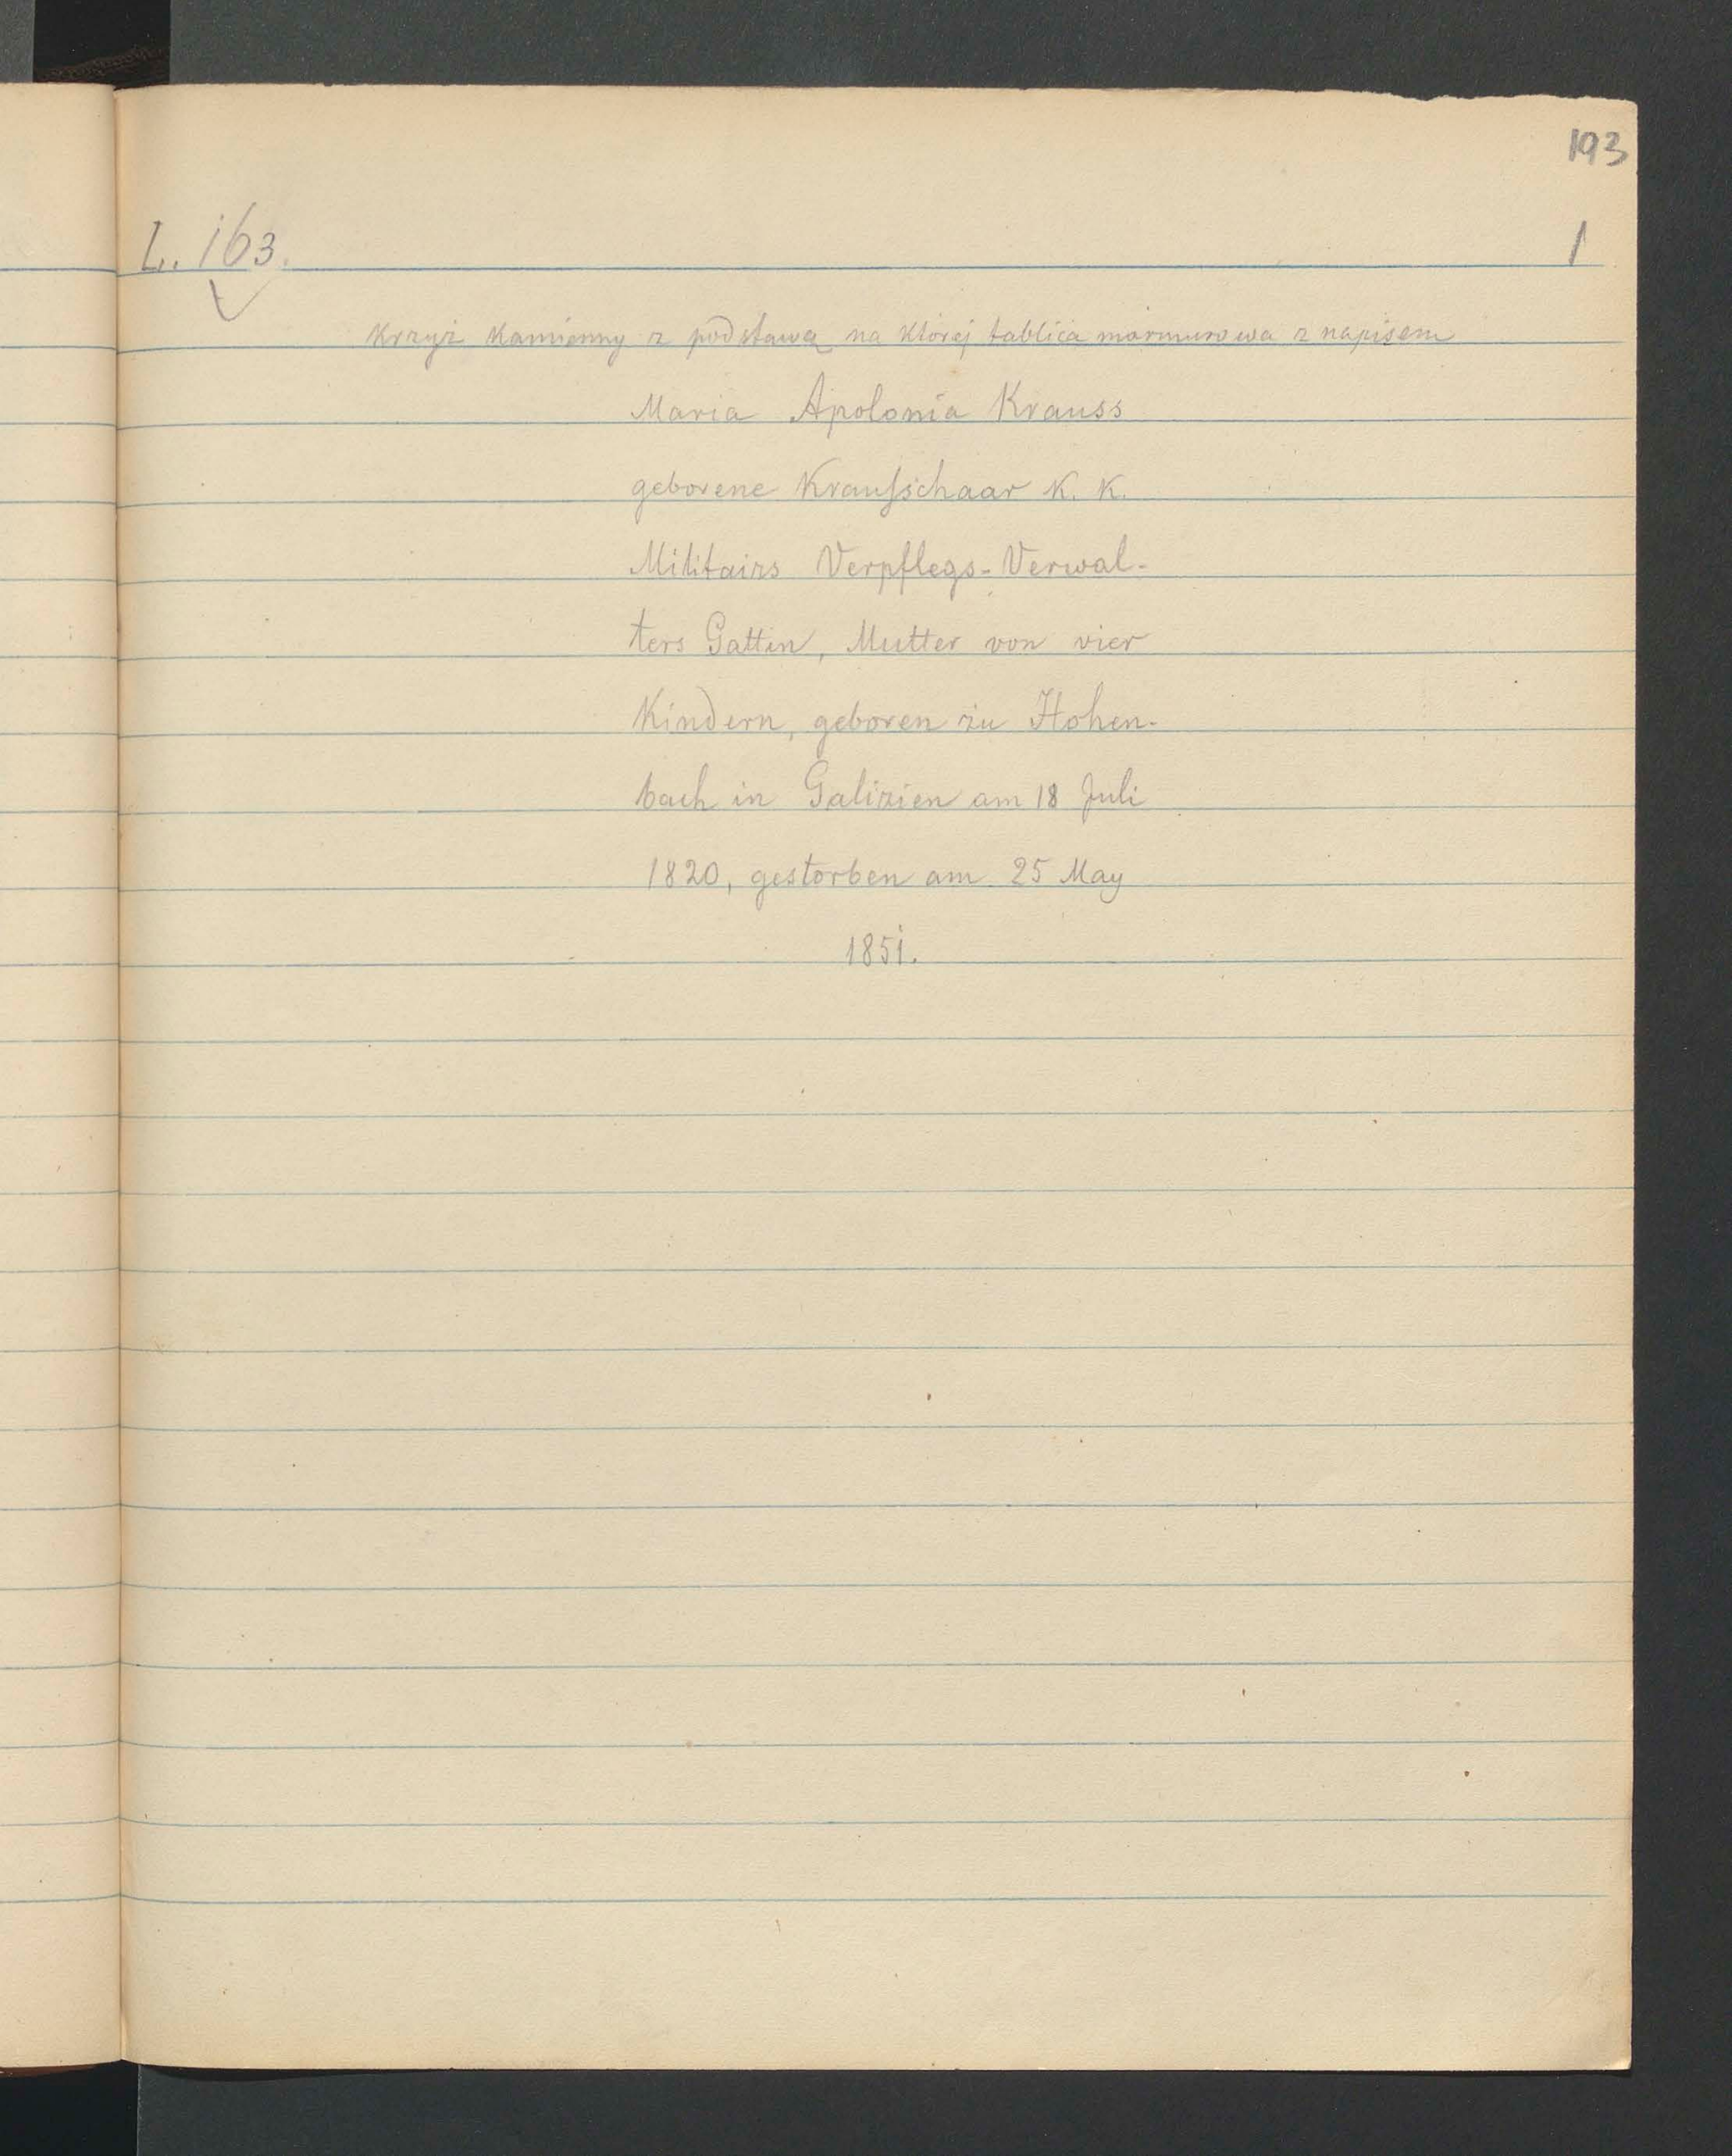 193
L. 163. 1
Krzyż Kamienny z podstawą na której tablica marmurowa z napisem
Maria Apolonia Krauss
geborene Kraufschaar K. K.
Militairs Verpflegs-Verwal-
ters Gattin, Mutter von vier
Kindern, geboren zu Hohen-
bach in Galizien am 18 Juli
1820, gestorben am 25 May
1851.